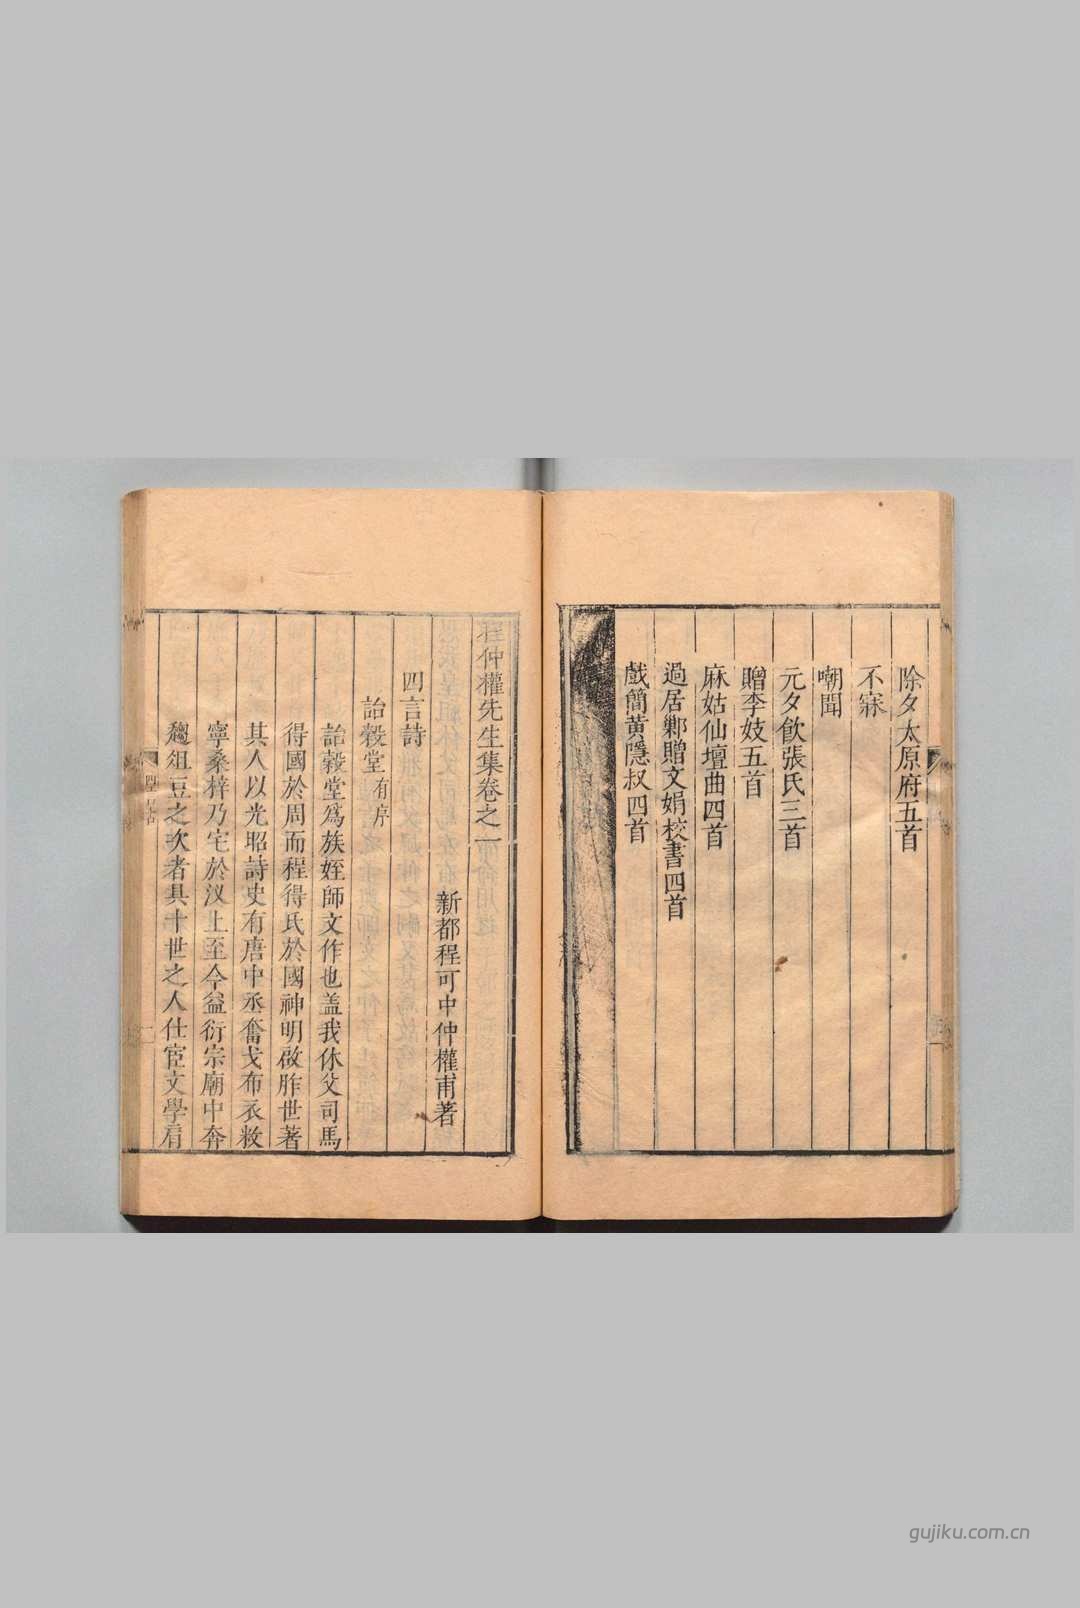 除夕太原府五首
不寐
嘲聞
元夕飲張氏三首
贈李妓五首
麻姑仙壇曲四首
過居鄭贈文娟校書四首
戲簡黃隱叔四首
程仲權先生集卷之一
新都程可中仲權甫著
四言詩
詒穀堂有序
詒穀堂為族姪師文作也蓋我休父司馬
得國於周而程得氏於國神明啟胙世著
其人以光昭詩史有唐中丞奮戈布衣救
寧桑梓乃宅於汊上至今益衍宗廟中奔
趨俎豆之次者具十世之人仕宦文學肩
gujiku.com.cn